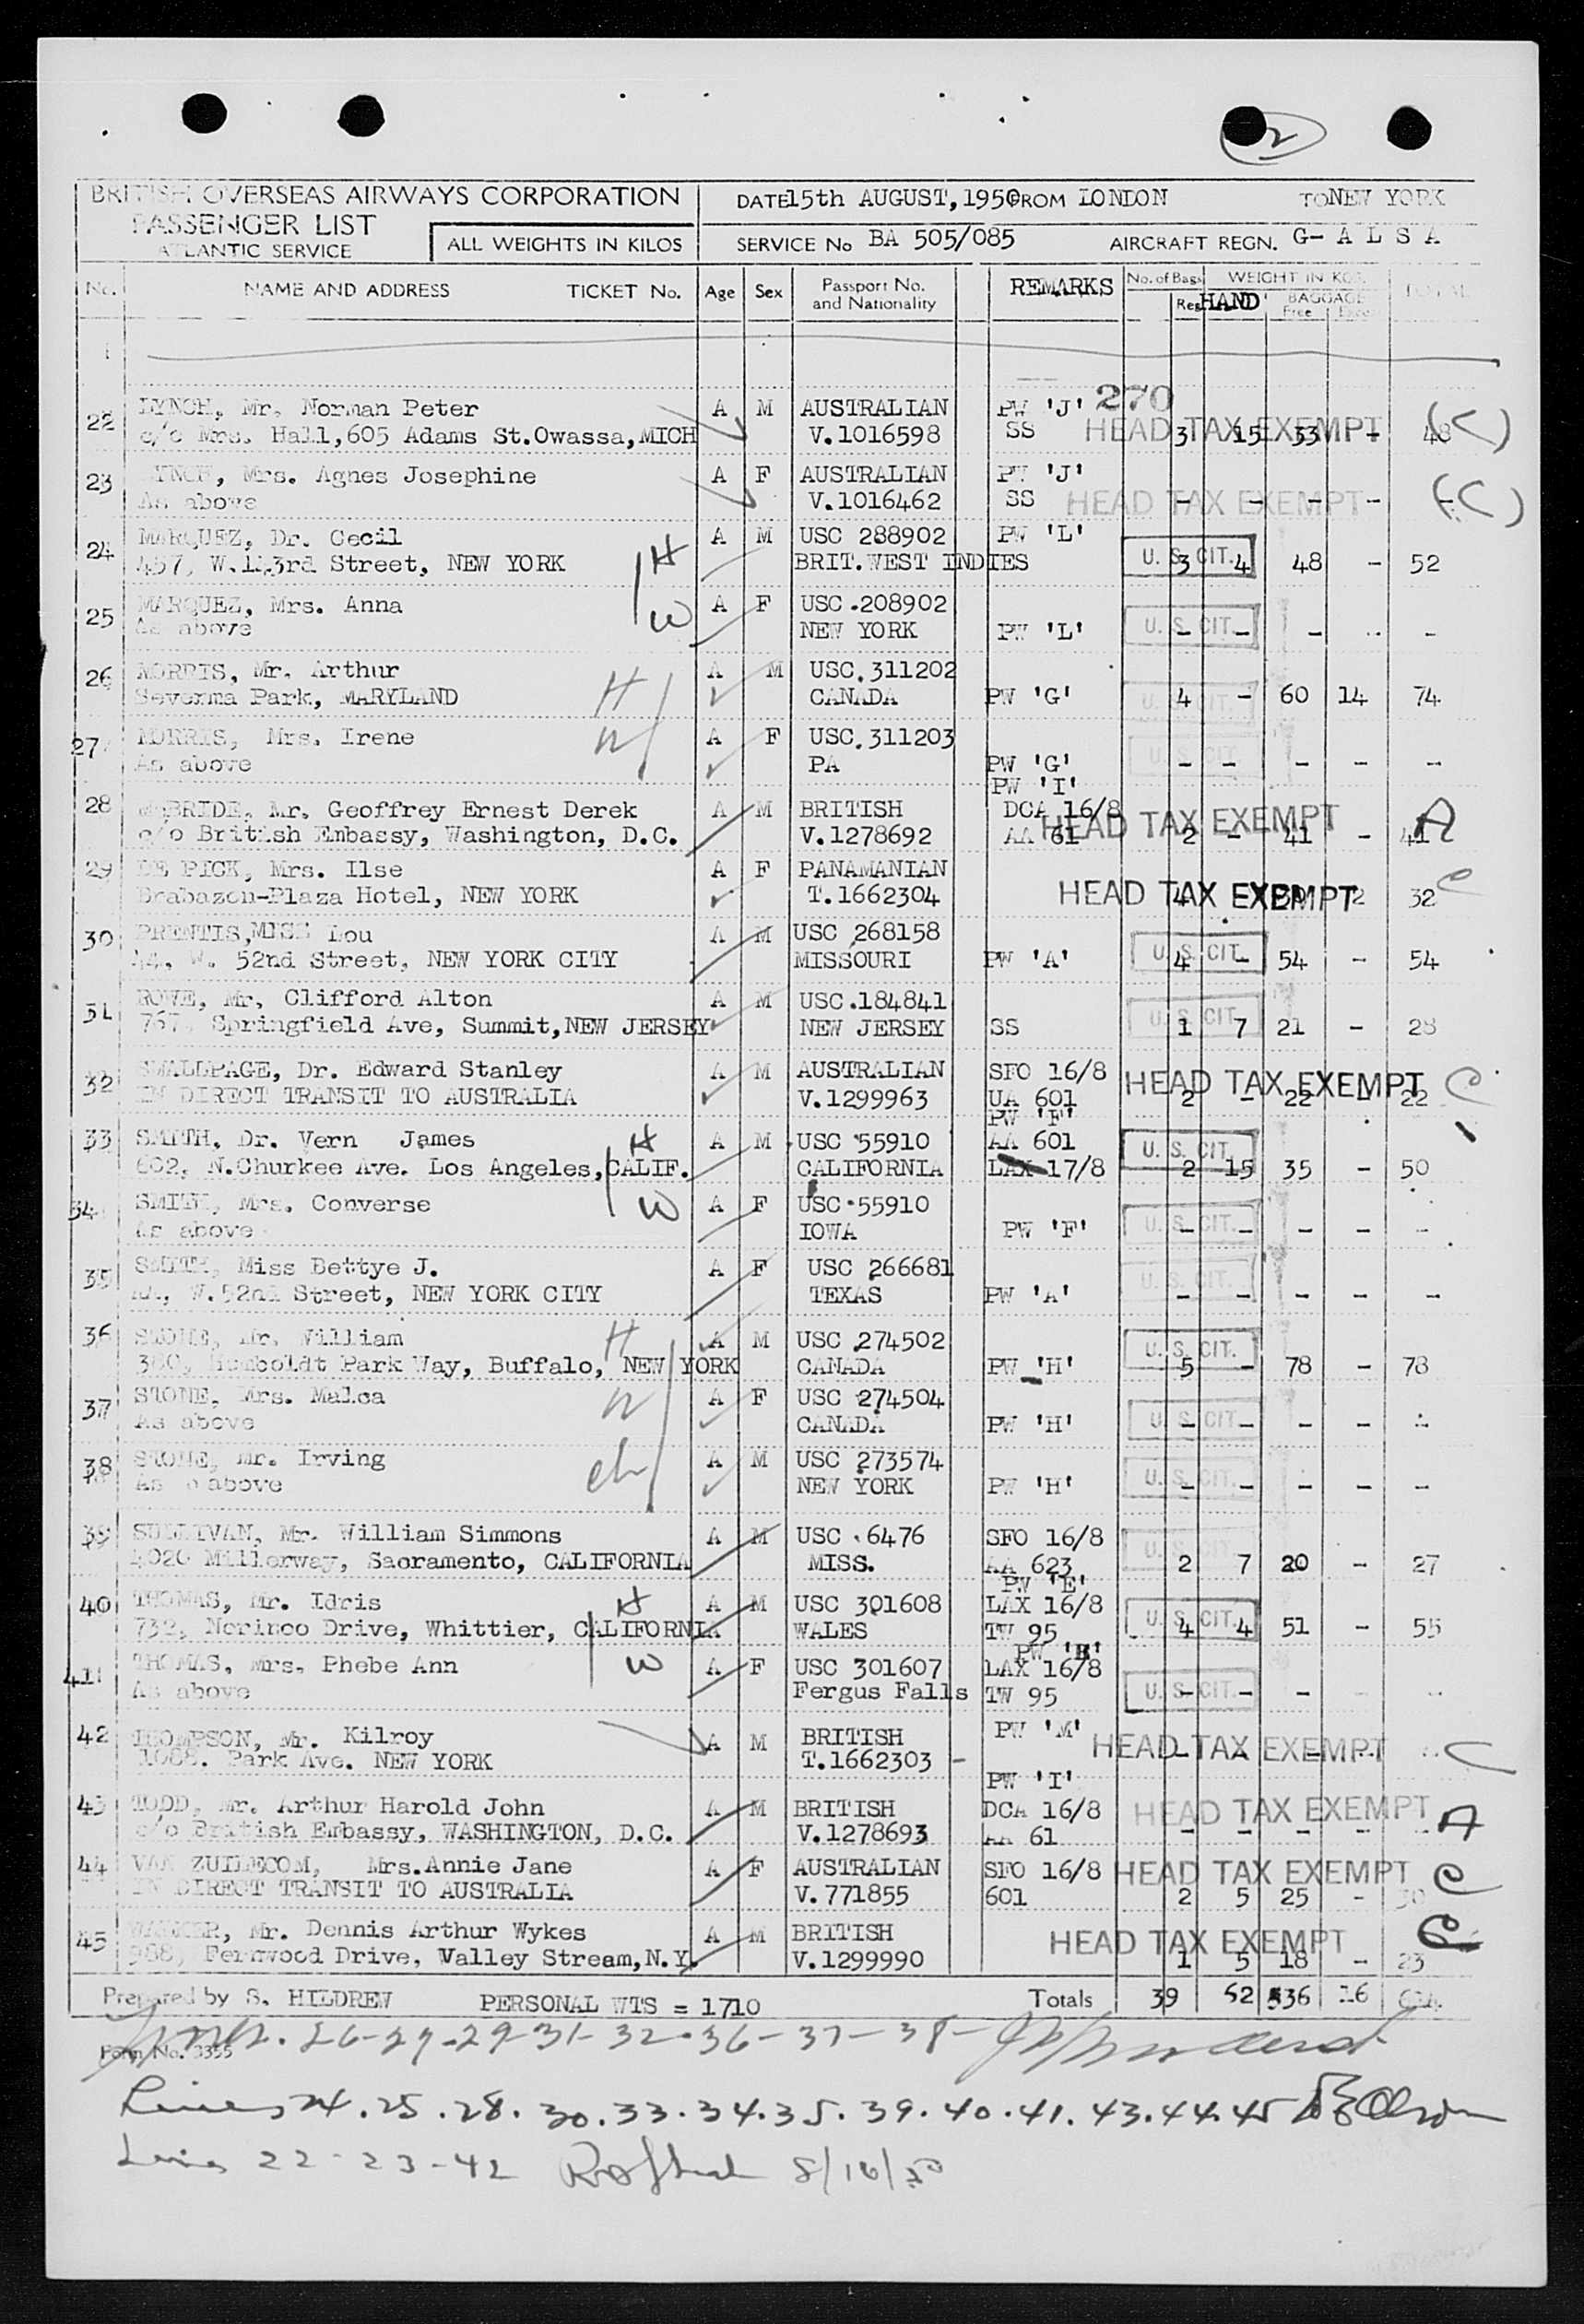 2
BRITISH OVERSEAS AIRWAYS CORPORATION
PASSENGER LIST
ATLANTIC SERVICE
ALL WEIGHTS IN KILOS
DATE 15th AUGUST, 1950 FROM LONDON TO NEW YORK
SERVICE No BA 505/085 AIRCRAFT REGN. G- A L S A
No. NAME AND ADDRESS TICKET No. Age Sex Passport No. and Nationality REMARKS No. of Bags Reg HAND WEIGHT IN KGS. BAGGAGE Free Excess TOTAL
270
22 LYNCH, Mr. Norman Peter A M AUSTRALIAN PW 'J'
c/o Mrs. Hall,605 Adams St.Owassa,MICH V.1016598 SS HEAD TAX EXEMPT 3 15 33 - 48 (C)
23 LYNCH, Mrs. Agnes Josephine A F AUSTRALIAN PW 'J'
As above V.1016462 SS HEAD TAX EXEMPT - - - - - (C)
24 MARQUEZ, Dr. Cecil A M USC 288902 PW 'L'
457, W.143rd Street, NEW YORK H BRIT.WEST INDIES U. S. CIT. 3 4 48 - 52
25 MARQUEZ, Mrs. Anna W A F USC.208902
As above NEW YORK PW 'L' U. S. CIT. - - - - -
26 MORRIS, Mr. Arthur H A M USC.311202
Severnna Park, MARYLAND CANADA PW 'G' U. S. CIT. 4 - 60 14 74
27 MORRIS, Mrs. Irene W A F USC.311203
As above PA PW 'G' U. S. CIT. - - - - -
PW 'I'
28 McBRIDE, Mr. Geoffrey Ernest Derek A M BRITISH DCA 16/8
c/o British Embassy, Washington, D.C. V.1278692 AA 61 HEAD TAX EXEMPT 2 - 41 - 41 A
29 DE PICK, Mrs. Ilse A F PANAMANIAN
Brabazon-Plaza Hotel, NEW YORK T.1662304 HEAD TAX EXEMPT 4 - 30 2 32 C
30 PRENTIS,MISS Lou A M USC 268158
44, W. 52nd Street, NEW YORK CITY MISSOURI PW 'A' U. S. CIT. 4 - 54 - 54
31 ROWE, Mr. Clifford Alton A M USC.184841
767, Springfield Ave, Summit,NEW JERSEY NEW JERSEY SS U. S. CIT. 1 7 21 - 28
32 SMALLPAGE, Dr. Edward Stanley A M AUSTRALIAN SFO 16/8
IN DIRECT TRANSIT TO AUSTRALIA V.1299963 UA 601 HEAD TAX EXEMPT 2 - 22 - 22 C
PW 'F'
33 SMITH, Dr. Vern James H A M USC 55910 AA 601
602, N.Churkee Ave. Los Angeles,CALIF. CALIFORNIA LAX 17/8 U. S. CIT. 2 15 35 - 50
34 SMITH, Mrs. Converse W A F USC.55910
As above IOWA PW 'F' U. S. CIT. - - - - -
35 SMITH, Miss Bettye J. A F USC 266681
44, W.52nd Street, NEW YORK CITY TEXAS PW 'A' U. S. CIT. - - - - -
36 STONE, Mr. William H A M USC 274502
380, Humboldt Park Way, Buffalo, NEW YORK CANADA PW 'H' U. S. CIT. 5 - 78 - 78
37 STONE, Mrs. Malca W A F USC 274504
As above CANADA PW 'H' U. S. CIT. - - - - -
38 STONE, Mr. Irving ch A M USC 273574
As above NEW YORK PW 'H' U. S. CIT. - - - - -
39 SULLIVAN, Mr. William Simmons A M USC.6476 SFO 16/8
4020 Millerway, Sacramento, CALIFORNIA MISS. AA 623 U. S. CIT. 2 7 20 - 27
PW 'E'
40 THOMAS, Mr. Idris H A M USC 301608 LAX 16/8
732, Norinco Drive, Whittier, CALIFORNIA WALES TW 95 U. S. CIT. 4 4 51 - 55
PW 'B'
41 THOMAS, Mrs. Phebe Ann W A F USC 301607 LAX 16/8
As above Fergus Falls TW 95 U. S. CIT. - - - - -
42 THOMPSON, Mr. Kilroy A M BRITISH PW 'M'
1088. Park Ave. NEW YORK T.1662303 - HEAD TAX EXEMPT C
PW 'I'
43 TODD, Mr. Arthur Harold John A M BRITISH DCA 16/8
c/o British Embassy, WASHINGTON, D.C. V.1278693 AA 61 HEAD TAX EXEMPT - - - - - A
44 VAN ZUILECOM, Mrs.Annie Jane A F AUSTRALIAN SFO 16/8
IN DIRECT TRANSIT TO AUSTRALIA V.771855 601 HEAD TAX EXEMPT 2 5 25 - 30 C
45 Mr. Dennis Arthur Wykes A M BRITISH
988, Fernwood Drive, Valley Stream,N.Y. V.1299990 HEAD TAX EXEMPT 1 5 18 - 23 C
Prepared by S. HILDREW PERSONAL WTS = 1710 Totals 39 62 536 16 614
Form No. 3355
Lines. 26-27-29-31-32-36-37-38-
Lines 24.25.28.30.33.34.35.39.40.41.43.44.45
Lines 22-23-42 8/16/50